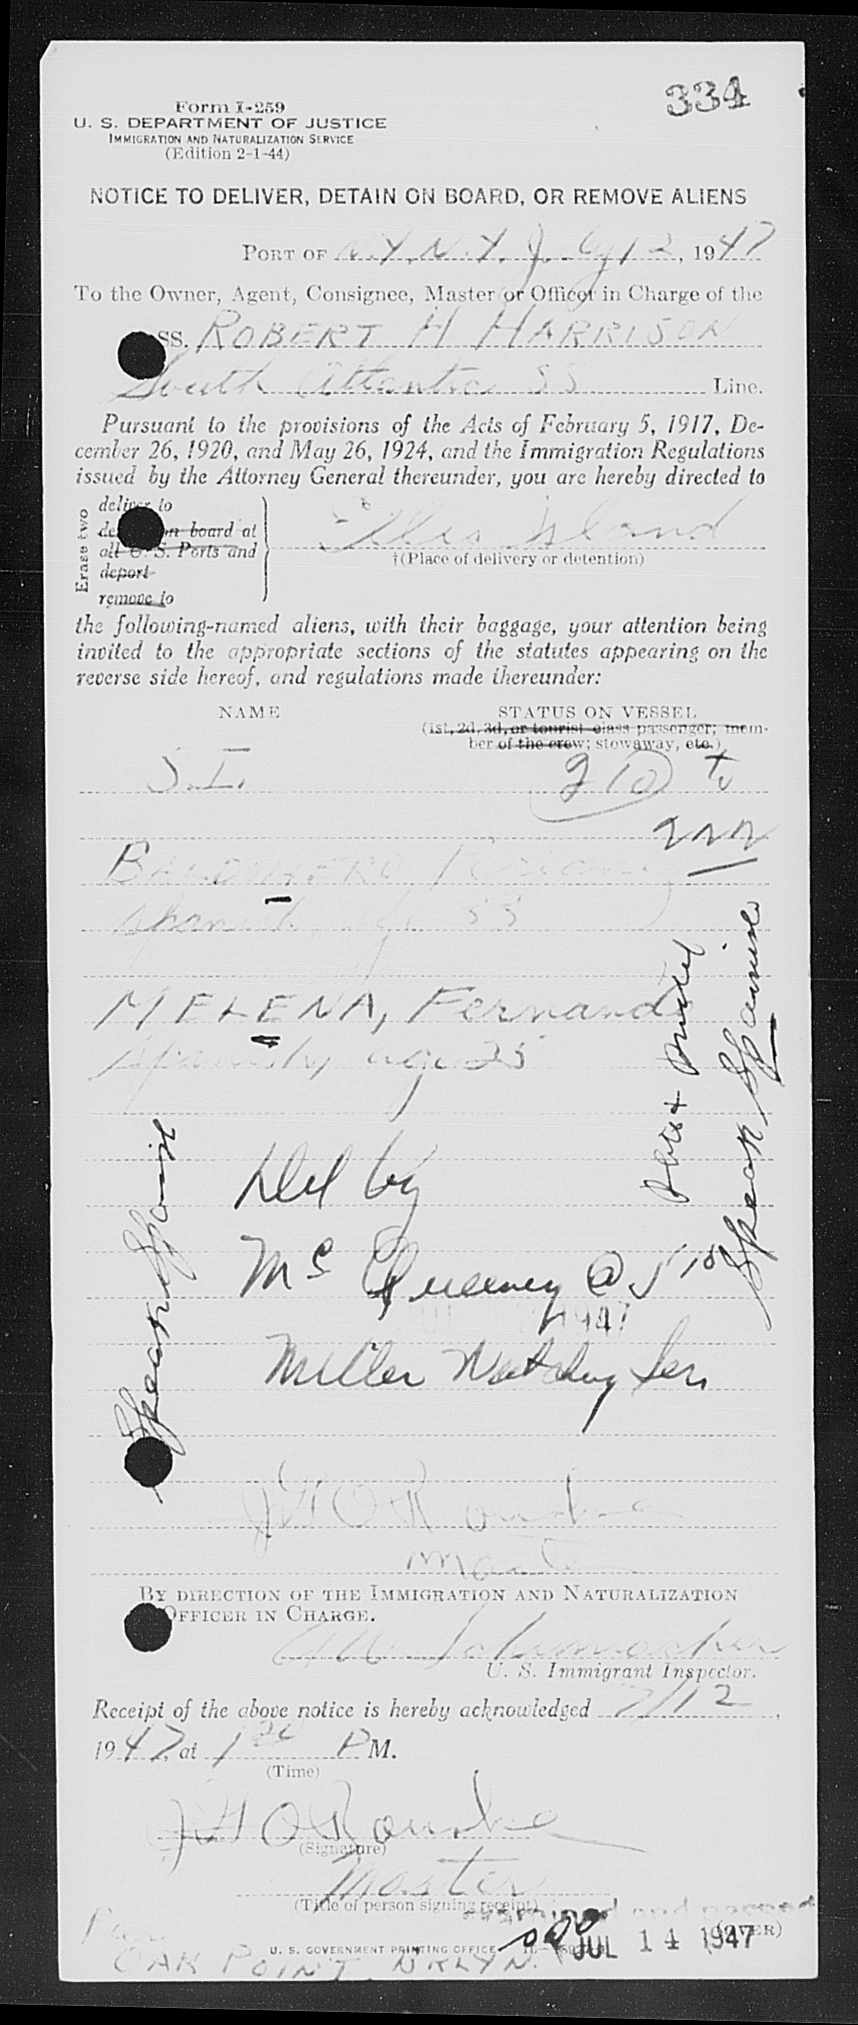 334
Form I-259
U. S. DEPARTMENT OF JUSTICE
IMMIGRATION AND NATURALIZATION SERVICE
(Edition 2-1-44)
NOTICE TO DELIVER, DETAIN ON BOARD, OR REMOVE ALIENS
PORT OF N.Y. N.Y. July 12, 1947
To the Owner, Agent, Consignee, Master or Officer in Charge of the
SS. ROBERT H HARRISON
South Atlantic SS Line.
Pursuant to the provisions of the Acts of February 5, 1917, De-
cember 26, 1920, and May 26, 1924, and the Immigration Regulations
issued by the Attorney General thereunder, you are hereby directed to
Erase two
deliver to
on board at
all U. S. Ports and
deport
remove to
Ellis Island
†(Place of delivery or detention)
the following-named aliens, with their baggage, your attention being
invited to the appropriate sections of the statutes appearing on the
reverse side hereof, and regulations made thereunder:
NAME STATUS ON VESSEL
(1st, 2d, 3d, or tourist class passenger; mem-
ber of the crew; stowaway, etc.)
S.I. 210 to
222
Spanish age 55
MELENA, Fernando
Spanish, age 25
Speak Spanish
Speak Spanish
Del by
McQueeney @ 5 10
1947
Miller Watching Ser
J H O'Rourke
Master
BY DIRECTION OF THE IMMIGRATION AND NATURALIZATION
OFFICER IN CHARGE.
Schumacher
U. S. Immigrant Inspector.
Receipt of the above notice is hereby acknowledged 7/12,
1947, at 1 PM.
(Time)
J H O'Rourke
(Signature)
Master
(Title of person signing receipt)
examined and passed
(OVER)
U. S. GOVERNMENT PRINTING OFFICE
JUL 14 1947
OAK POINT BKLYN.